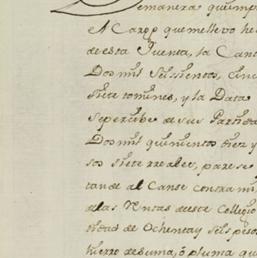 Demanera que imp
el Cargo que me llevo he
de esta Quenta, la Cant
Dos mil Seissientos, cinc
Siete tomines, y la Data
Sepercibe de sus Partida
Dos mil quinientos Diez y
sos siete rreales, parese
tando al Canse contra mi
de las Rentas deeste Collegio
tidad de Ochenta y seis pesos
hierro de suma, ó pluma qu